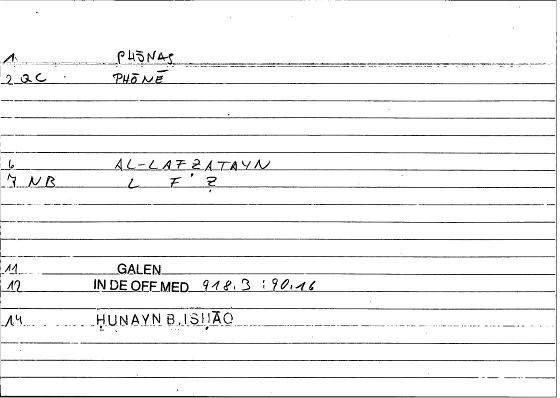 1 PHŌNAS
2 QC PHŌNĒ
6 AL-LAFẒATAYN
7 NB L F Ẓ
11 GALEN
12 IN DE OFF MED 918,3 : 90,16
14 ḤUNAYN B. ISḤĀQ